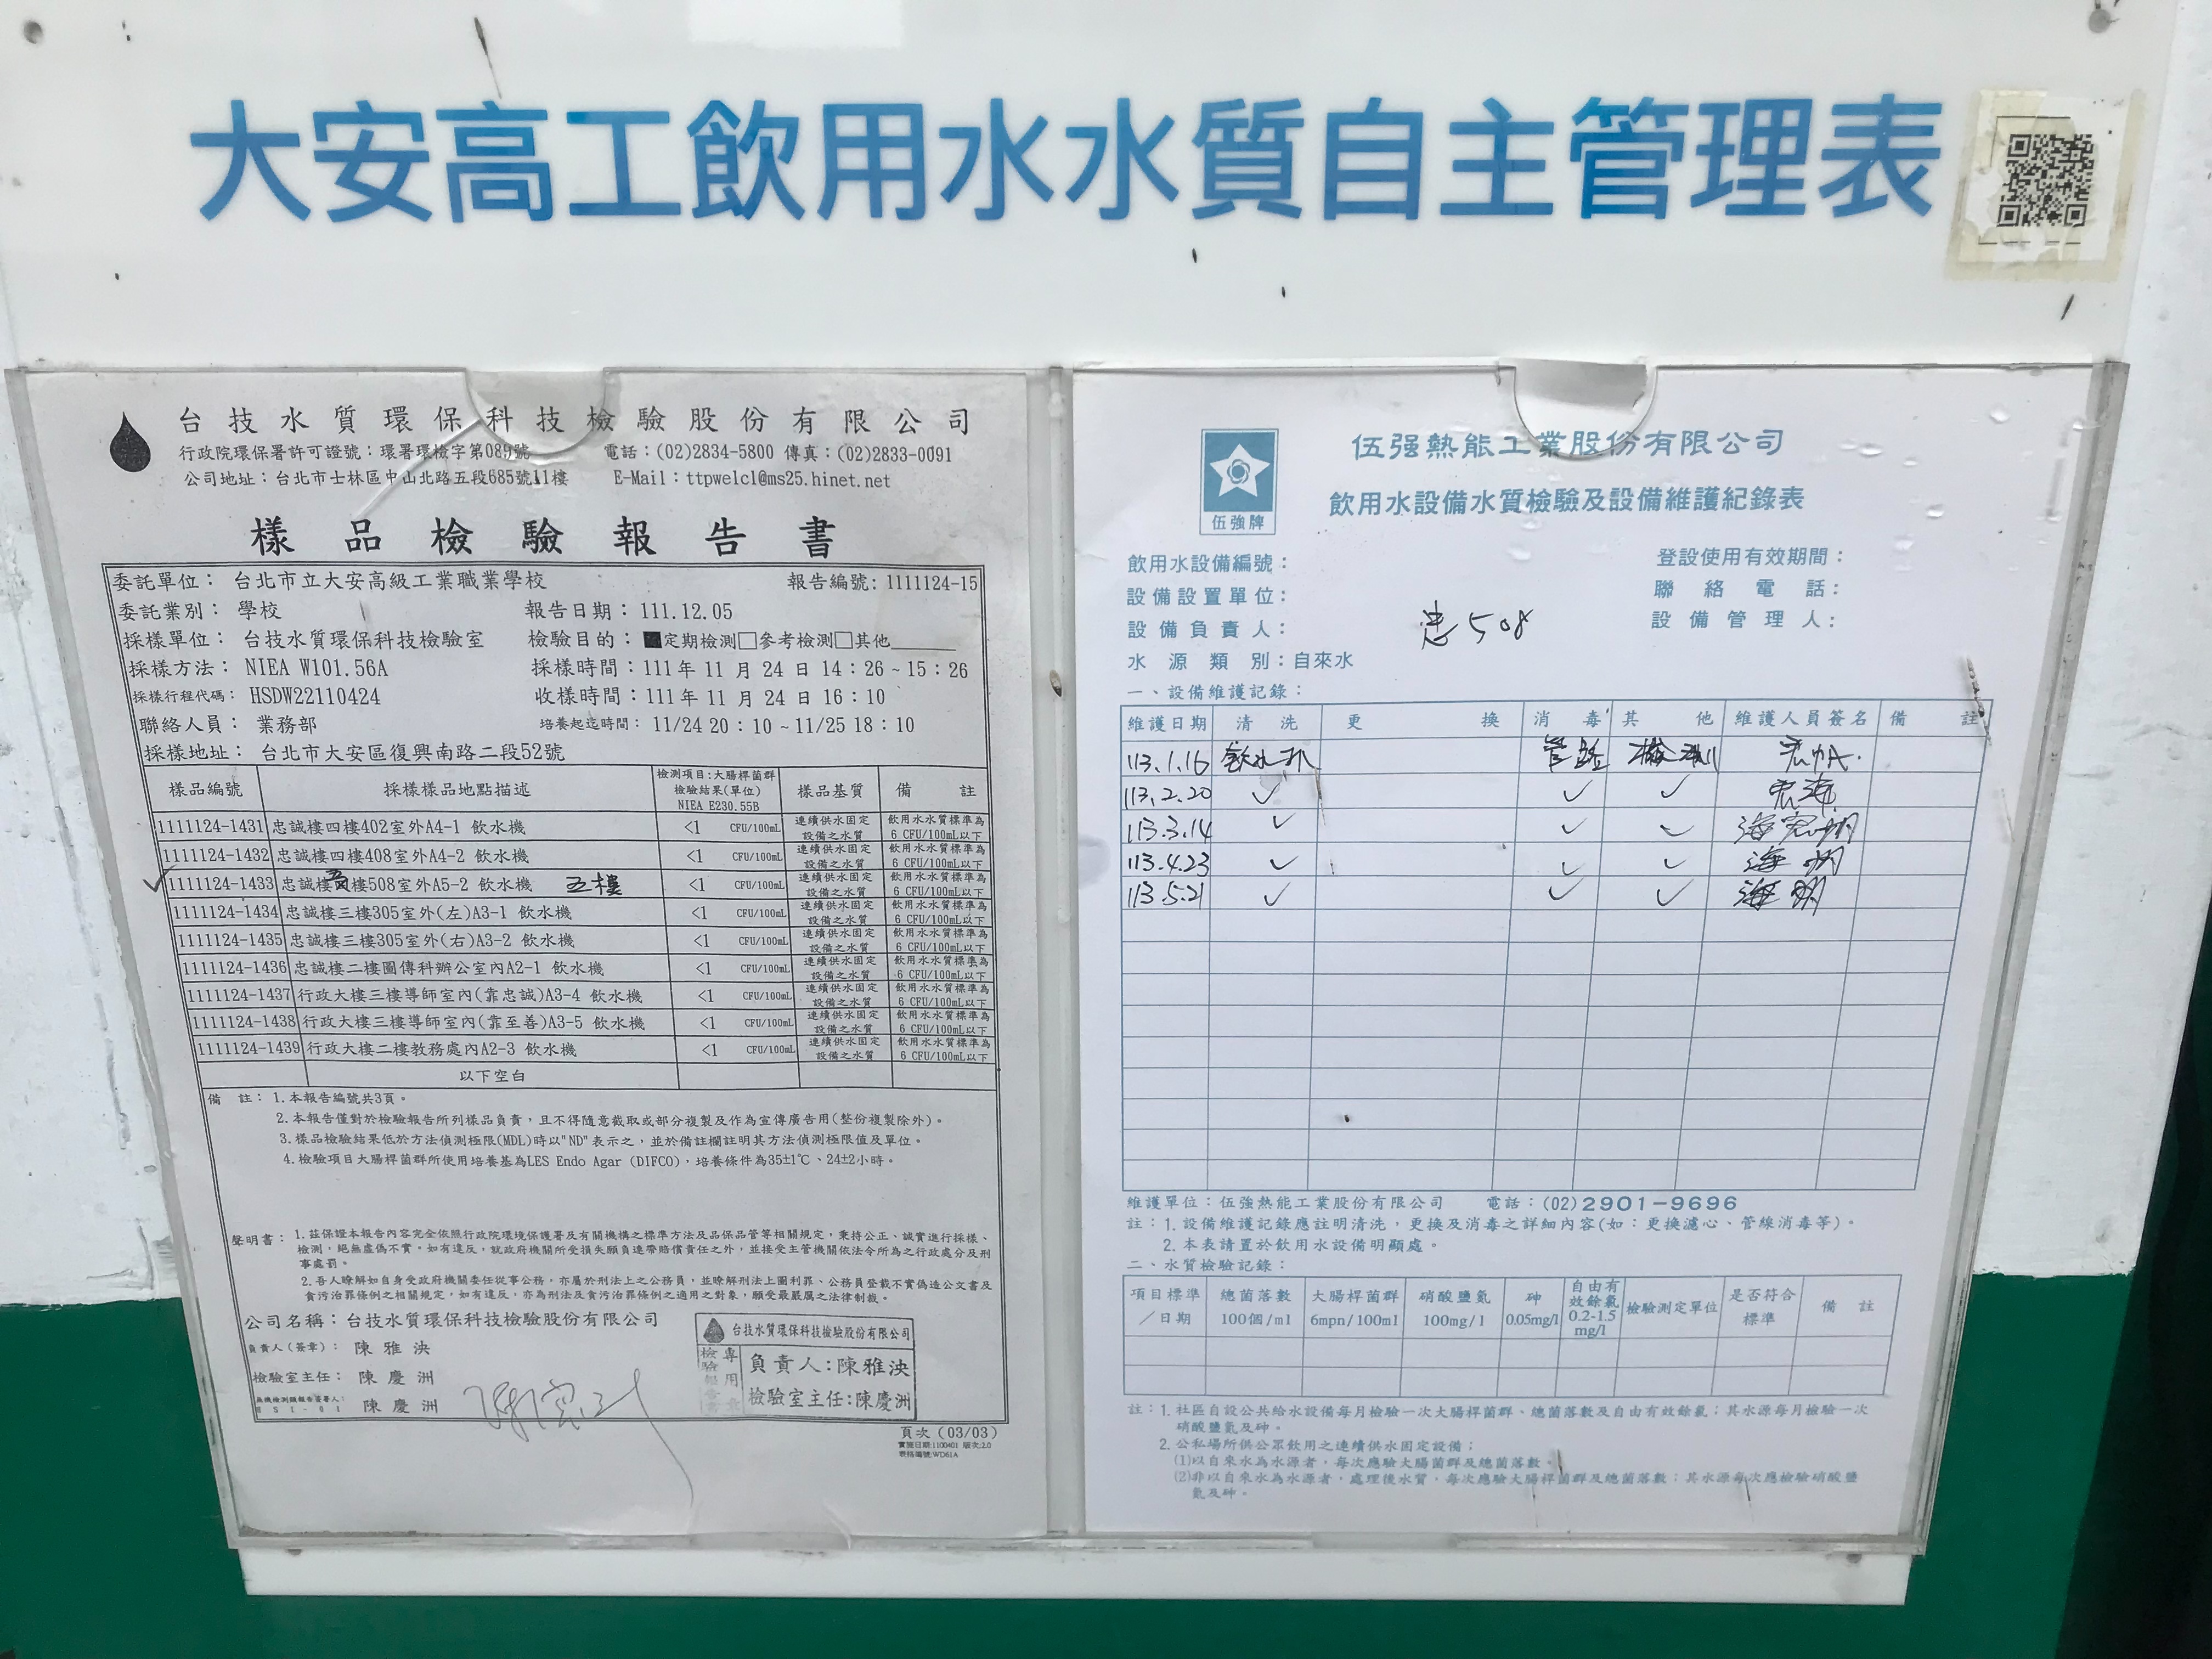 大安高工飲用水水質自主管理表
台技水質環保科技檢驗股份有限公司
行政院環保署許可證號：環署環檢字第089號 電話：(02)2834-5800 傳真：(02)2833-0091
公司地址：台北市士林區中山北路五段685號11樓 E-Mail：ttpwelcl@ms25.hinet.net
樣品檢驗報告書
委託單位： 台北市立大安高級工業職業學校 報告編號: 1111124-15
委託業別： 學校 報告日期：111.12.05
採樣單位： 台技水質環保科技檢驗室 檢驗目的：■定期檢測□參考檢測□其他
採樣方法： NIEA W101.56A 採樣時間：111年 11 月 24 日 14：26 ~ 15：26
採樣行程代碼： HSDW22110424 收樣時間：111年 11 月 24 日 16：10
聯絡人員： 業務部 培養起迄時間： 11/24 20：10 ~ 11/25 18：10
採樣地址： 台北市大安區復興南路二段52號
樣品編號 採樣樣品地點描述 檢測項目:大腸桿菌群 檢驗結果(單位) NIEA E230.55B 樣品基質 備註
1111124-1431 忠誠樓四樓402室外A4-1 飲水機 <1 CFU/100mL 連續供水固定設備之水質 飲用水水質標準為6 CFU/100mL以下
1111124-1432 忠誠樓四樓408室外A4-2 飲水機 <1 CFU/100mL 連續供水固定設備之水質 飲用水水質標準為6 CFU/100mL以下
✓ 1111124-1433 忠誠樓五樓508室外A5-2 飲水機 五樓 <1 CFU/100mL 連續供水固定設備之水質 飲用水水質標準為6 CFU/100mL以下
1111124-1434 忠誠樓三樓305室外(左)A3-1 飲水機 <1 CFU/100mL 連續供水固定設備之水質 飲用水水質標準為6 CFU/100mL以下
1111124-1435 忠誠樓三樓305室外(右)A3-2 飲水機 <1 CFU/100mL 連續供水固定設備之水質 飲用水水質標準為6 CFU/100mL以下
1111124-1436 忠誠樓二樓圖傳科辦公室內A2-1 飲水機 <1 CFU/100mL 連續供水固定設備之水質 飲用水水質標準為6 CFU/100mL以下
1111124-1437 行政大樓三樓導師室內(靠忠誠)A3-4 飲水機 <1 CFU/100mL 連續供水固定設備之水質 飲用水水質標準為6 CFU/100mL以下
1111124-1438 行政大樓三樓導師室內(靠至善)A3-5 飲水機 <1 CFU/100mL 連續供水固定設備之水質 飲用水水質標準為6 CFU/100mL以下
1111124-1439 行政大樓二樓教務處內A2-3 飲水機 <1 CFU/100mL 連續供水固定設備之水質 飲用水水質標準為6 CFU/100mL以下
以下空白
備註：1.本報告編號共3頁。
2.本報告僅對於檢驗報告所列樣品負責，且不得隨意截取或部分複製及作為宣傳廣告用(整份複製除外)。
3.樣品檢驗結果低於方法偵測極限(MDL)時以"ND"表示之，並於備註欄註明其方法偵測極限值及單位。
4.檢驗項目大腸桿菌群所使用培養基為LES Endo Agar (DIFCO)，培養條件為35±1℃、24±2小時。
聲明書：1.茲保證本報告內容完全依照行政院環境保護署及有關機構之標準方法及品保品管等相關規定，秉持公正、誠實進行採樣、
檢測，絕無虛偽不實。如有違反，就政府機關所受損失願負連帶賠償責任之外，並接受主管機關依法令所為之行政處分及刑
事處罰。
2.吾人瞭解如自身受政府機關委任從事公務，亦屬於刑法上之公務員，並瞭解刑法上圖利罪、公務員登載不實偽造公文書及
貪污治罪條例之相關規定，如有違反，亦為刑法及貪污治罪條例之適用之對象，願受最嚴厲之法律制裁。
公司名稱：台技水質環保科技檢驗股份有限公司
負責人(簽章)： 陳雅泱
檢驗室主任： 陳慶洲
無機檢測類報告簽署人： 陳慶洲
台技水質環保科技檢驗股份有限公司
檢驗報告專用章
負責人:陳雅泱
檢驗室主任:陳慶洲
頁次（03/03）
實施日期:1100401 版次:2.0
表格編號:WD61A
伍強牌
伍强熱能工業股份有限公司
飲用水設備水質檢驗及設備維護紀錄表
飲用水設備編號： 登設使用有效期間：
設備設置單位： 聯絡電話：
設備負責人： 忠508 設備管理人：
水源類別：自來水
一、設備維護記錄：
維護日期 清洗 更換 消毒 其他 維護人員簽名 備註
113.1.16 飲水机 管路 檢測
113.2.20 ✓ ✓ ✓
113.3.14 ✓ ✓ ✓
113.4.23 ✓ ✓ ✓
113.5.21 ✓ ✓ ✓
維護單位：伍強熱能工業股份有限公司 電話：(02)2901-9696
註：1.設備維護記錄應註明清洗，更換及消毒之詳細內容(如：更換濾心、管線消毒等)。
2.本表請置於飲用水設備明顯處。
二、水質檢驗記錄：
項目標準／日期 總菌落數100個/ml 大腸桿菌群6mpn/100ml 硝酸鹽氮100mg/l 砷0.05mg/l 自由有效餘氯0.2-1.5mg/l 檢驗測定單位 是否符合標準 備註
註：1.社區自設公共給水設備每月檢驗一次大腸桿菌群、總菌落數及自由有效餘氯；其水源每月檢驗一次
硝酸鹽氮及砷。
2.公私場所供公眾飲用之連續供水固定設備；
(1)以自來水為水源者，每次應驗大腸菌群及總菌落數。
(2)非以自來水為水源者，處理後水質，每次應驗大腸桿菌群及總菌落數；其水源每次應檢驗硝酸鹽
氮及砷。